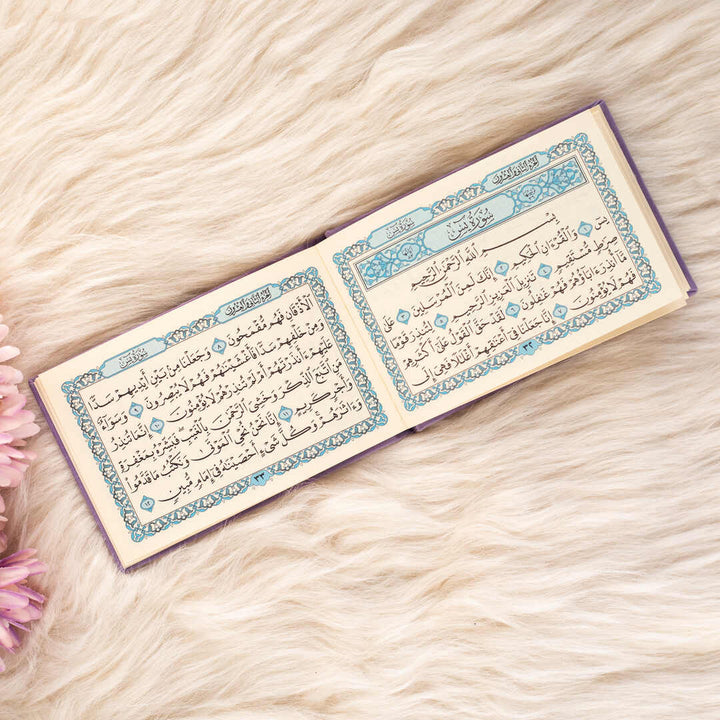 الجزء الثاني والعشرون
سورة يس
سُورَةُ يسٓ
بِسْمِ ٱللَّهِ ٱلرَّحْمَٰنِ ٱلرَّحِيمِ
يسٓ ١ وَٱلْقُرْءَانِ ٱلْحَكِيمِ ٢ إِنَّكَ لَمِنَ ٱلْمُرْسَلِينَ ٣ عَلَىٰ
صِرَٰطٍ مُّسْتَقِيمٍ ٤ تَنزِيلَ ٱلْعَزِيزِ ٱلرَّحِيمِ ٥ لِتُنذِرَ قَوْمًا
مَّآ أُنذِرَ ءَابَآؤُهُمْ فَهُمْ غَٰفِلُونَ ٦ لَقَدْ حَقَّ ٱلْقَوْلُ عَلَىٰٓ أَكْثَرِهِمْ
فَهُمْ لَا يُؤْمِنُونَ ٧ إِنَّا جَعَلْنَا فِىٓ أَعْنَٰقِهِمْ أَغْلَٰلًا فَهِىَ إِلَى
٣٢
الجزء الثاني والعشرون
سورة يس
ٱلْأَذْقَانِ فَهُم مُّقْمَحُونَ ٨ وَجَعَلْنَا مِنۢ بَيْنِ أَيْدِيهِمْ سَدًّا
وَمِنْ خَلْفِهِمْ سَدًّا فَأَغْشَيْنَٰهُمْ فَهُمْ لَا يُبْصِرُونَ ٩ وَسَوَآءٌ
عَلَيْهِمْ ءَأَنذَرْتَهُمْ أَمْ لَمْ تُنذِرْهُمْ لَا يُؤْمِنُونَ ١٠ إِنَّمَا تُنذِرُ
مَنِ ٱتَّبَعَ ٱلذِّكْرَ وَخَشِىَ ٱلرَّحْمَٰنَ بِٱلْغَيْبِ فَبَشِّرْهُ بِمَغْفِرَةٍ
وَأَجْرٍ كَرِيمٍ ١١ إِنَّا نَحْنُ نُحْىِ ٱلْمَوْتَىٰ وَنَكْتُبُ مَا قَدَّمُوا۟
وَءَاثَٰرَهُمْ وَكُلَّ شَىْءٍ أَحْصَيْنَٰهُ فِىٓ إِمَامٍ مُّبِينٍ ١٢
٣٣